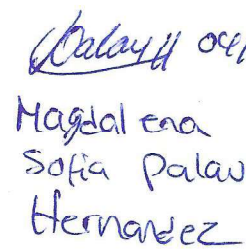 Magdalena
Sofia Palau
Hernandez